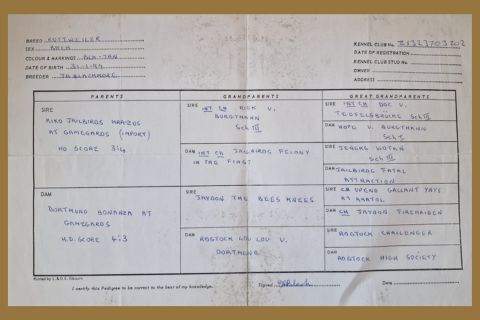 BREED ROTTWEILER
SEX BITCH
COLOUR & MARKINGS BLK-TAN
DATE OF BIRTH
BREEDER
KENNEL CLUB No.
DATE OF REGISTRATION
KENNEL CLUB STUD No.
OWNER
ADDRESS
PARENTS
GRANDPARENTS
GREAT GRANDPARENTS
SIRE
JAILBIRDS
AT GAMEGARDS (IMPORT)
HD SCORE 3:4
SIRE INT CH RICK V.
BURGTHANN
Sch III
DAM INT CH JAILBIRDS FELONY
IN THE FIRST
SIRE INT CH DOC V.
Sch III
DAM HOPE V. BURGTHANN
Sch I
SIRE WOTAN
Sch III
DAM JAILBIRDS FATAL
ATTRACTION
DAM
DORTMUND BONANZA AT
GAMEGARDS
H.D. SCORE 4:3
SIRE
JAYDON THE BEES KNEES
DAM
ROSTOCK LOU LOU V.
DORTMUND
SIRE CH UPEND GALLANT
AT
DAM CH JAYDON FIREMAIDEN
SIRE
ROSTOCK CHALLENGER
DAM
ROSTOCK HIGH SOCIETY
I certify this Pedigree to be correct to the best of my knowledge.
Signed
Date